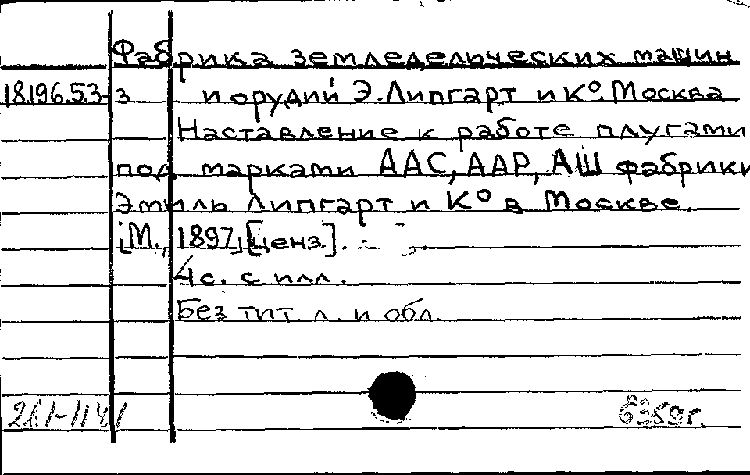 Фабрика земледельческих машин
18.196.5.3-3 и орудий Э. Липгарт и Кº. Москва
Наставление к работе плугами
под марками ААС, ААР, АШ фабрики
Эмиль Липгарт и Кº в Москве.
[М., 1897] [ценз].
4 с. с илл.
Без тит. л. и обл.